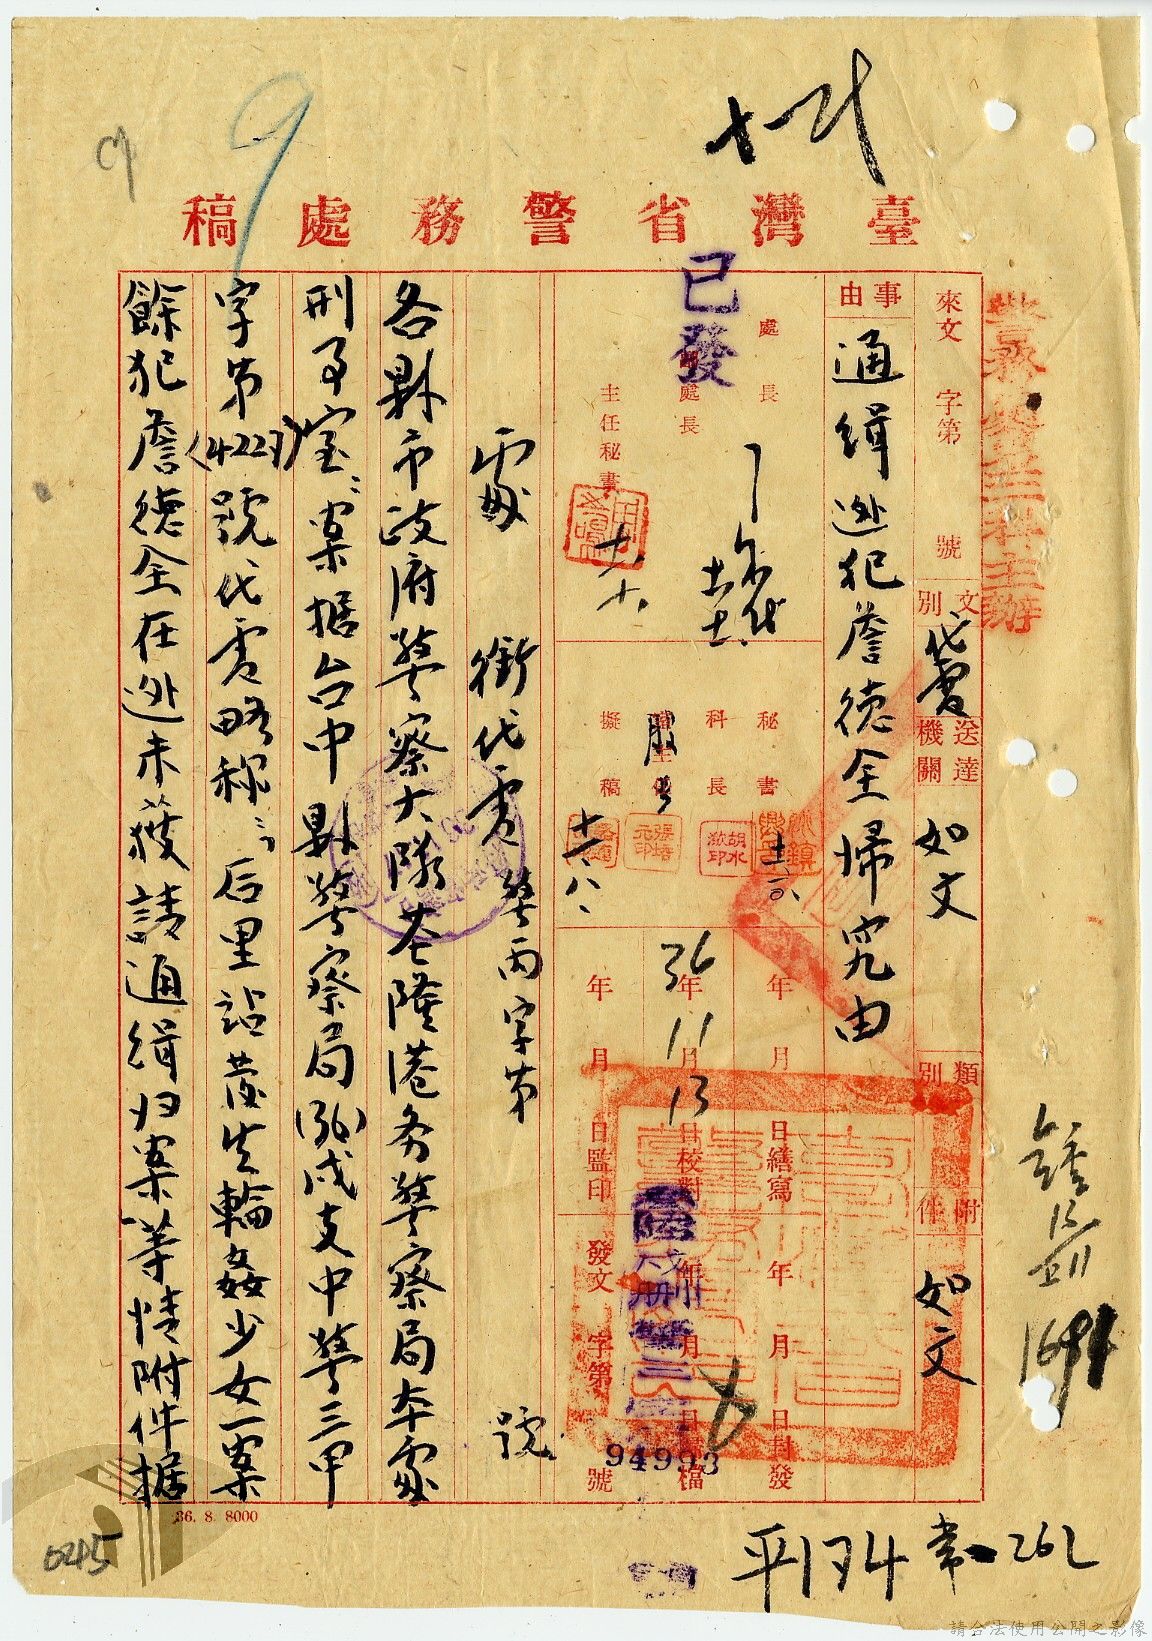 臺灣省警務處稿
已發
警務處第三科主辦
來文 字第 號
文別 代電
送達機關 如文
類別
附件 如文
事由 通緝逃犯詹德全歸究由
處長
處長
主任秘書
秘書
科長
擬稿
年 月 日繕寫
36年11月13日校對
年 月 日監印
年 月 日封發
年 月 日檔
發文 字第 號
94993
處 銜代電 警丙字第 號
各縣市政府警察大隊基隆港务警察局本處
刑事室：案据台中縣警察局(36)戌支中警三甲
字第(4227)號代電略称：「后里站發生輪姦少女一案
餘犯詹德全在逃未獲請通緝归案」等情附件據
36. 8. 8000
0245
平1734 常 262
請合法使用公開之影像